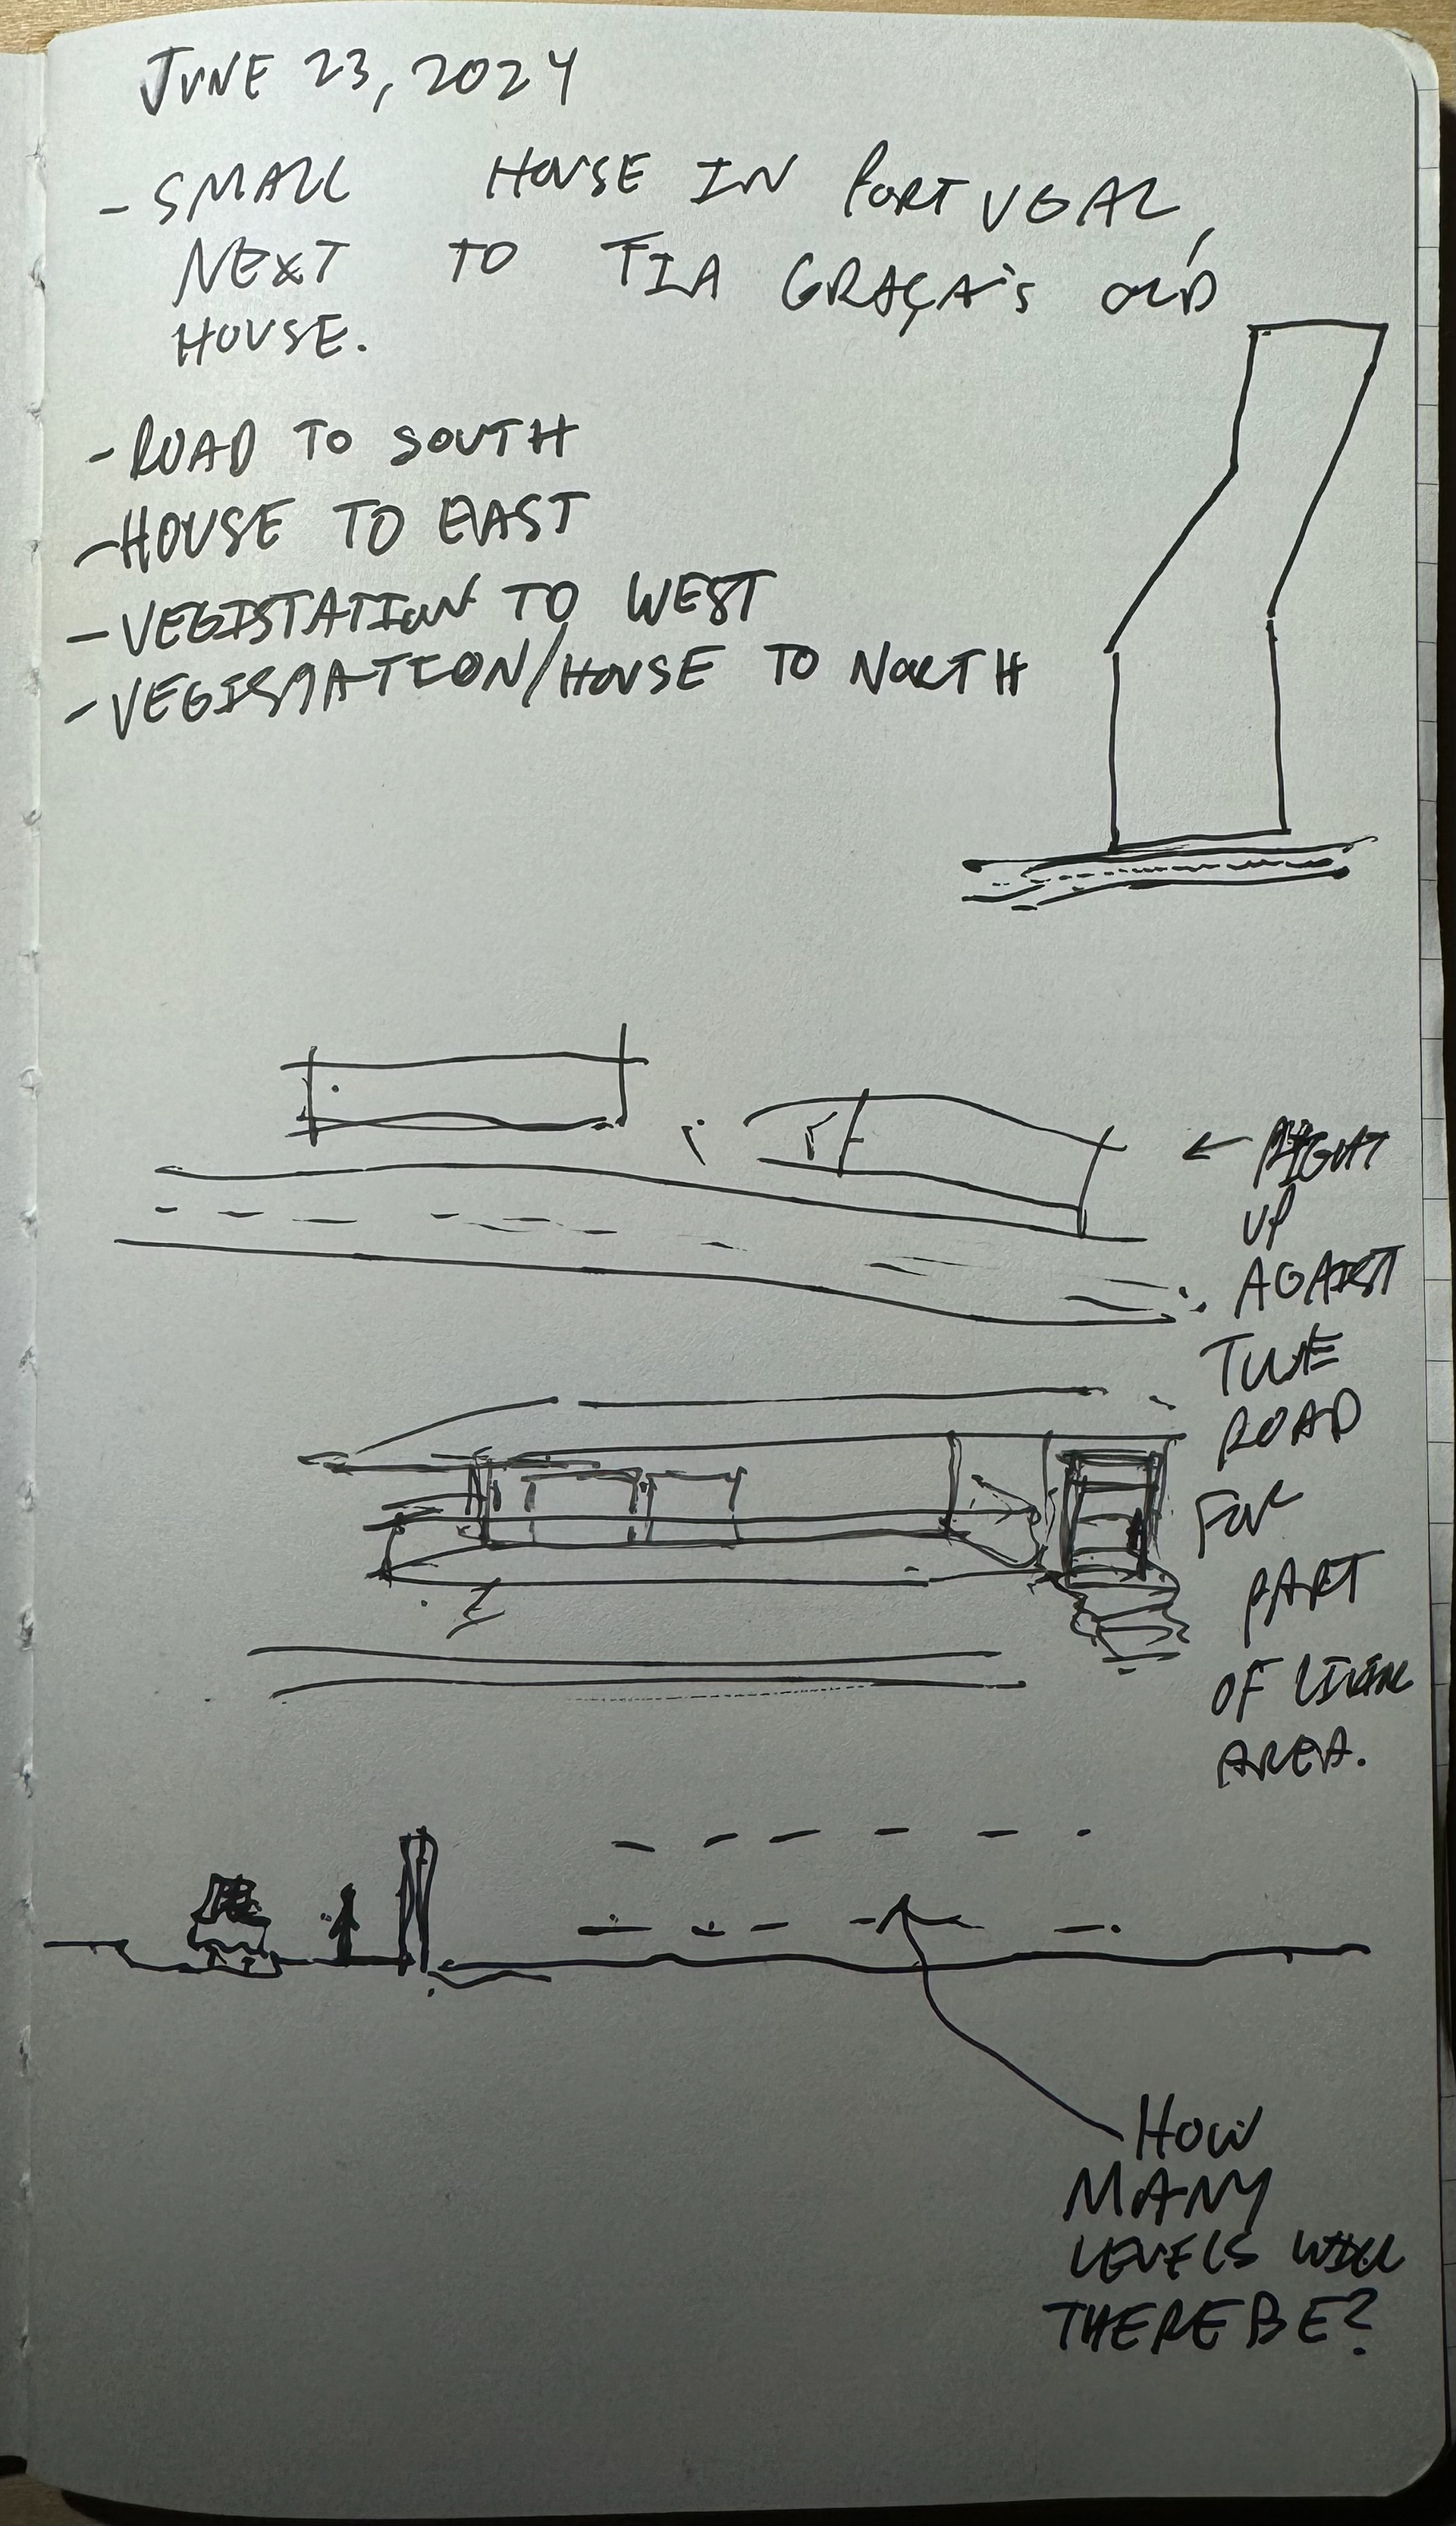 JUNE 23, 2024
- SMALL HOUSE IN PORTUGAL,
NEXT TO TIA GRAÇA'S OLD
HOUSE.
- ROAD TO SOUTH
- HOUSE TO EAST
- VEGISTATION TO WEST
- VEGISTATION/HOUSE TO NORTH
← RIGHT
UP
AGAIST
THE
ROAD
FOR
PART
OF LIVING
AREA.
HOW
MANY
LEVELS WILL
THERE BE?